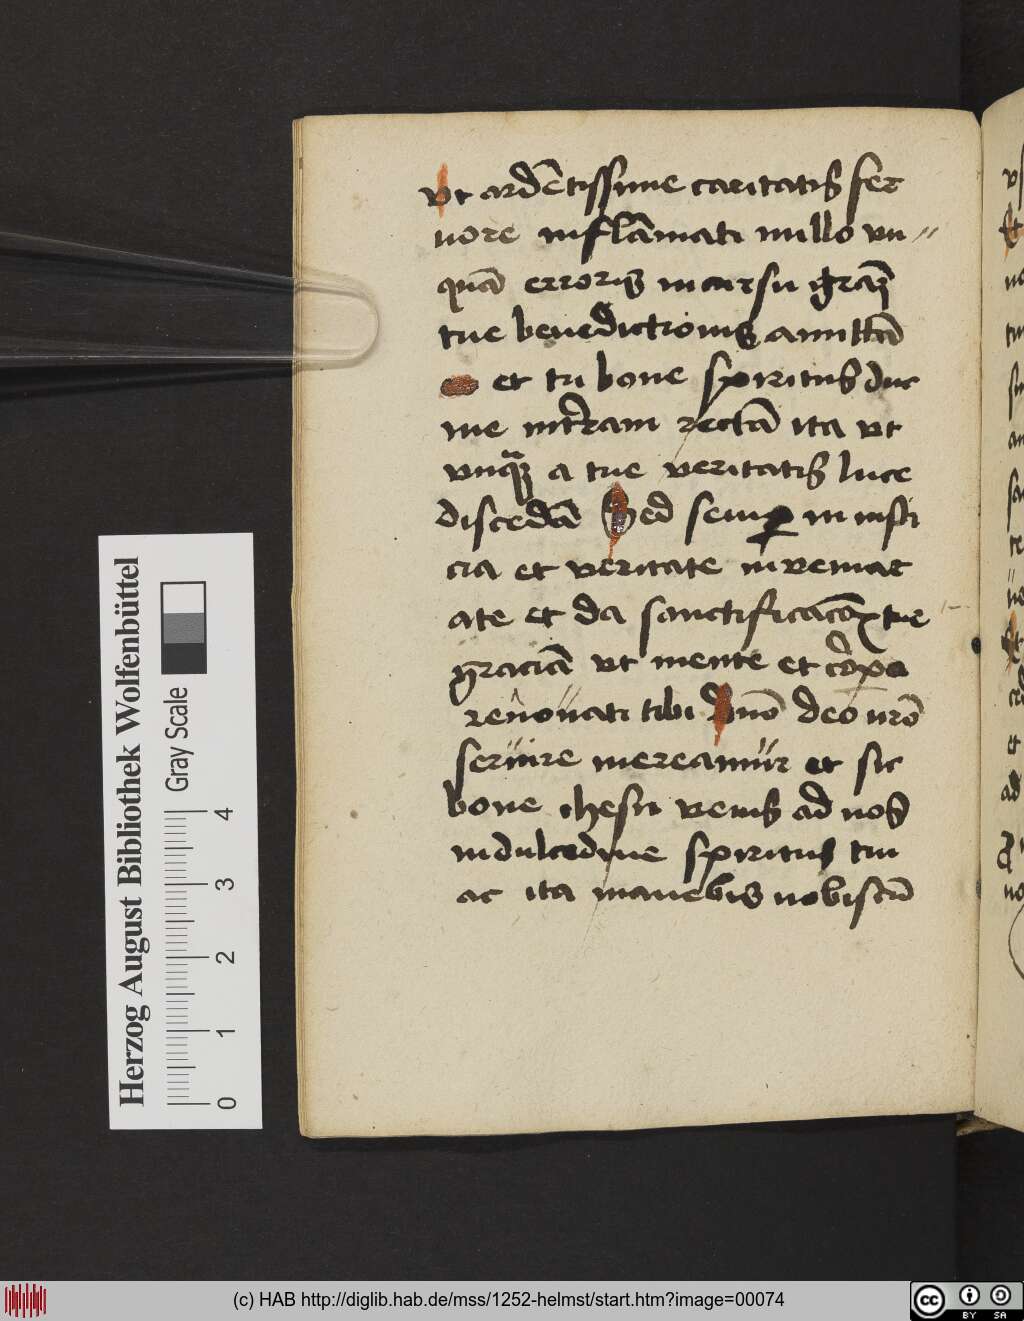 vt ardētissime caritatis fer
uore inflāmati nullo vn〃
quā erroris incursu graꝫ
tue benedictionis amittā
et tu bone spiritus duc
me in terram rectā ita vt
vnqꝫ a tue veritatis luce
discedā Sed semꝑ in iusti
cia et veritate inveniar
ate et da sanctificacōꝫ tue
graciā vt mente et corpe
renouati tibi dn̄o deo nr̄o
seruire mereamur et sic
bone ihesu venis ad nos
in dulcedine spiritus tui
ac ita manebis nobiscū
Herzog August Bibliothek Wolfenbüttel
Gray Scale
0 1 2 3 4
(c) HAB http://diglib.hab.de/mss/1252-helmst/start.htm?image=00074
cc BY SA